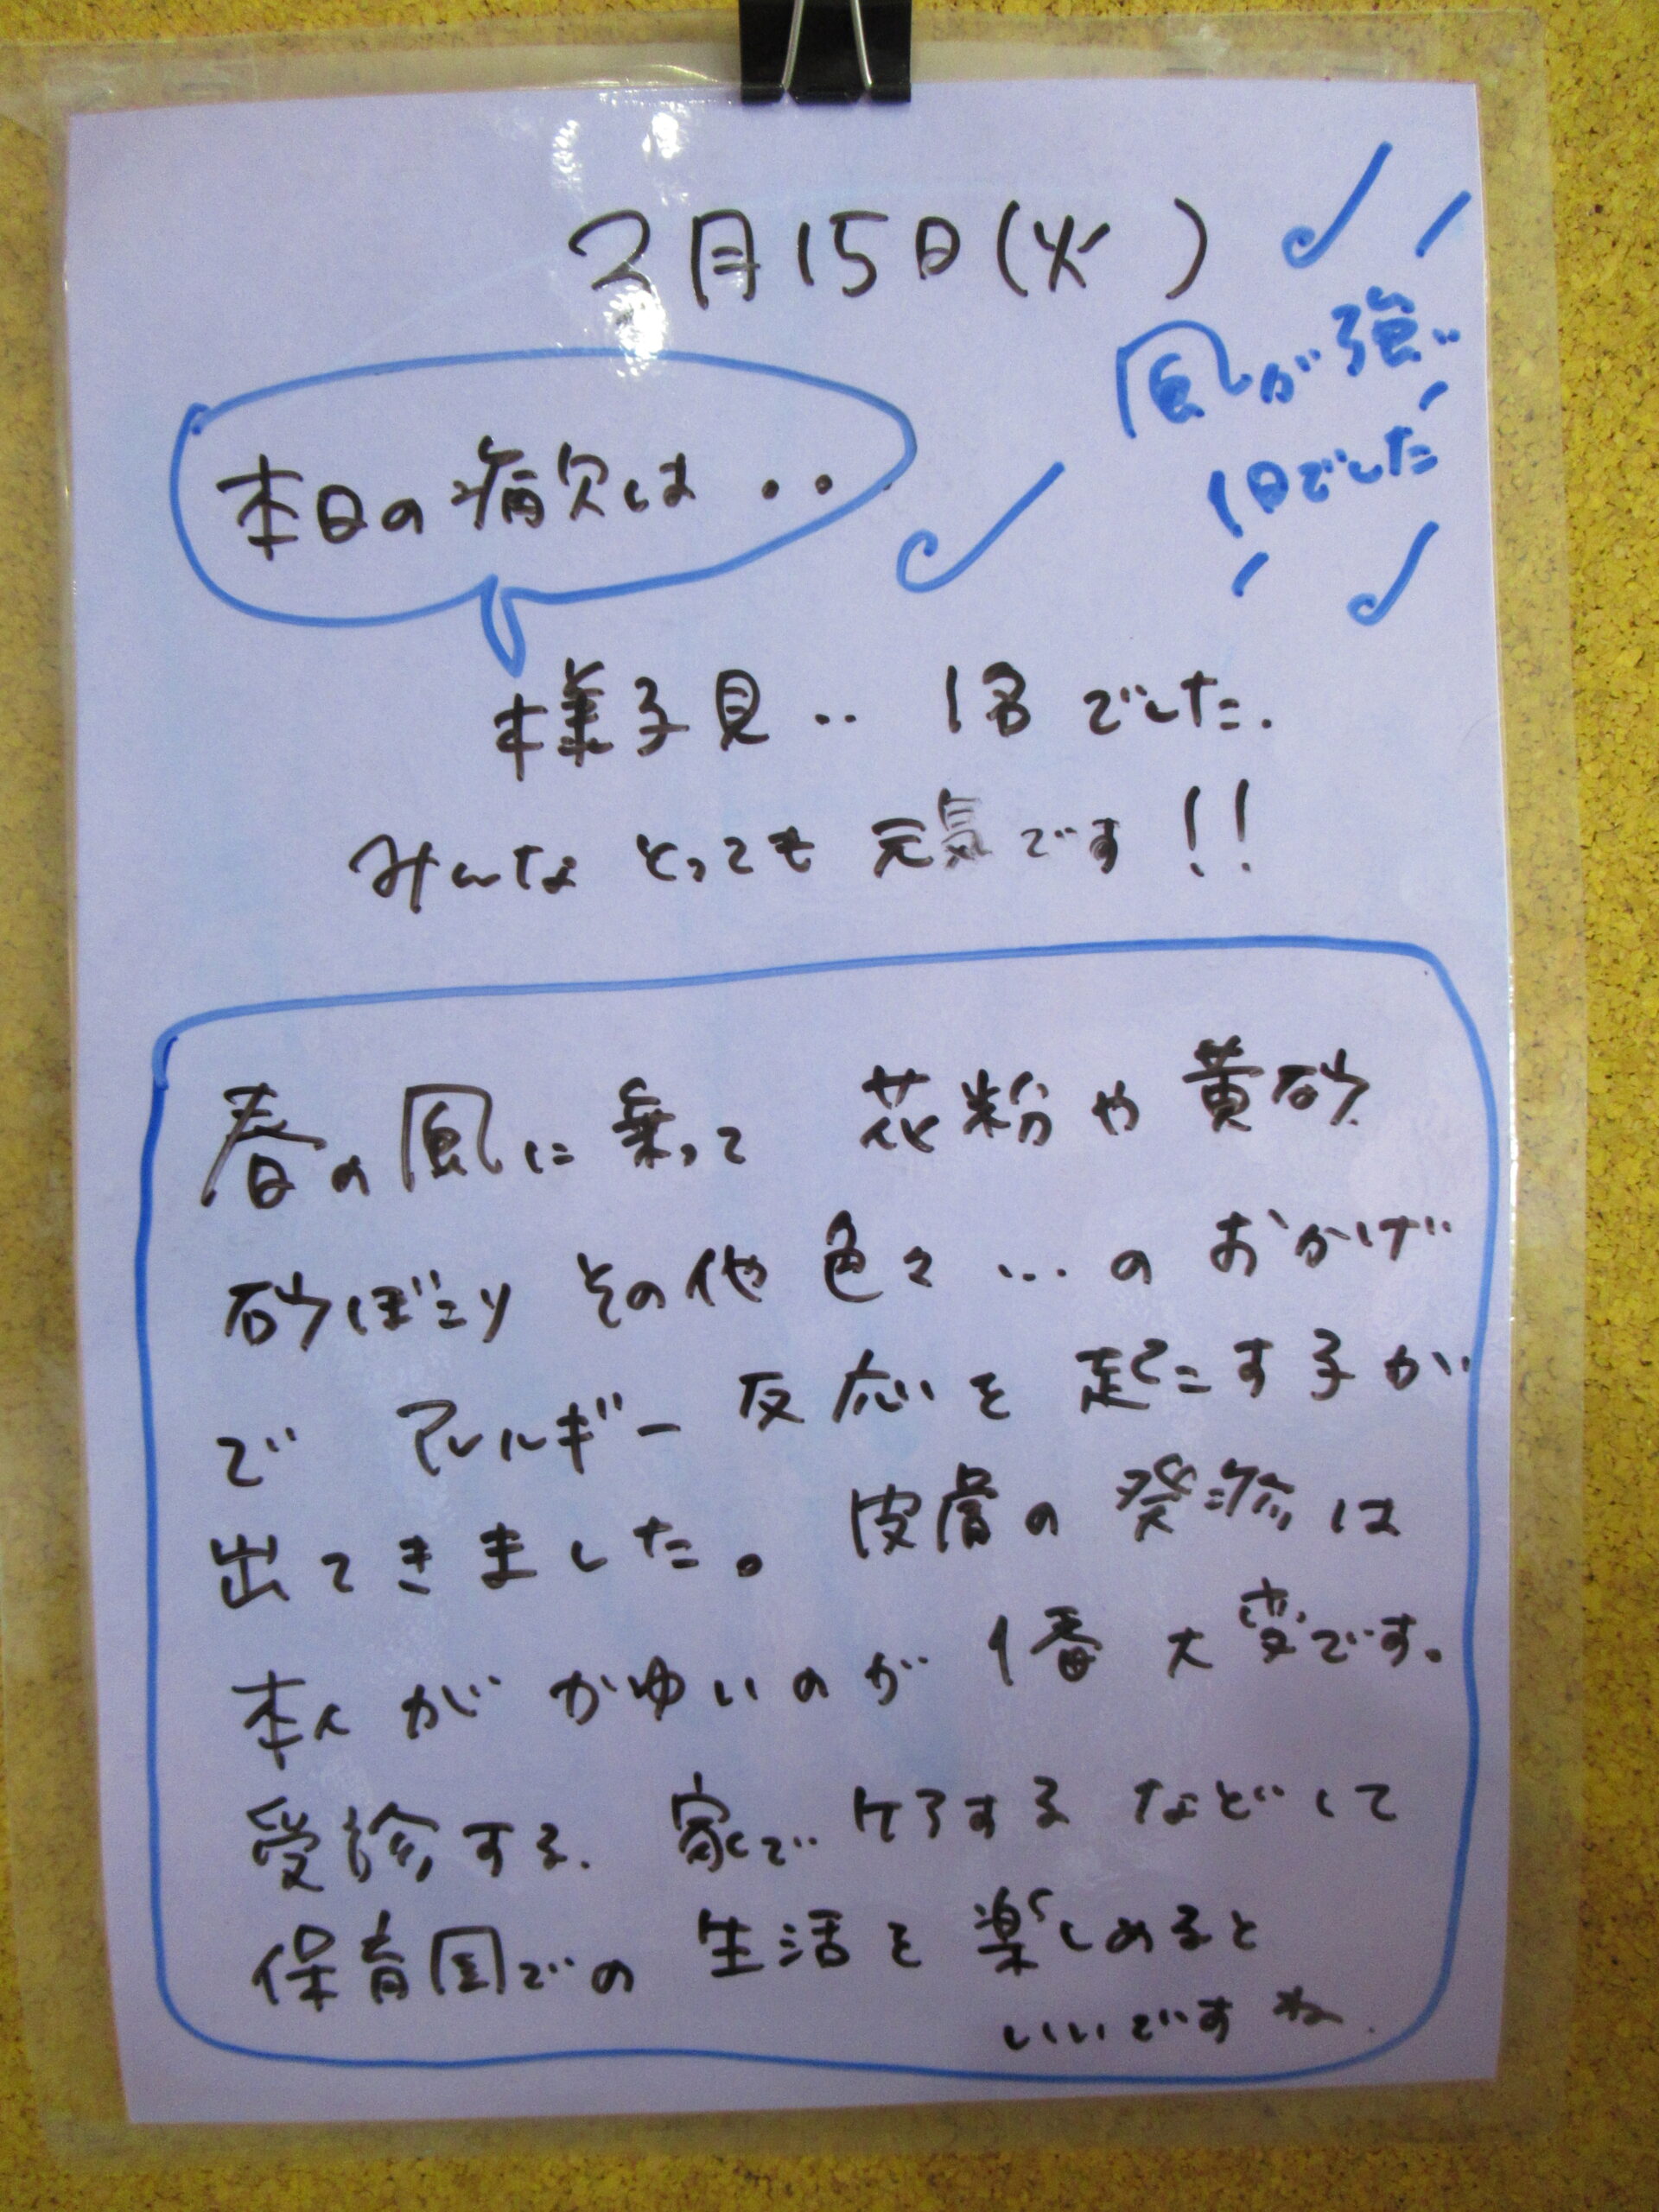 3月15日(火)
風が強い
1日でした
本日の病欠は・・
様子見‥ 1名でした.
みんな とっても 元気です!!
春の風に乗って 花粉や黄砂
砂ぼこり その他 色々…の おかげ
で アレルギー 反応を 起こす子が
出てきました。 皮膚の発疹は
本人が かゆいのが 1番 大変です。
受診する. 家で ケアする などして
保育園での 生活を 楽しめると
いいですね.